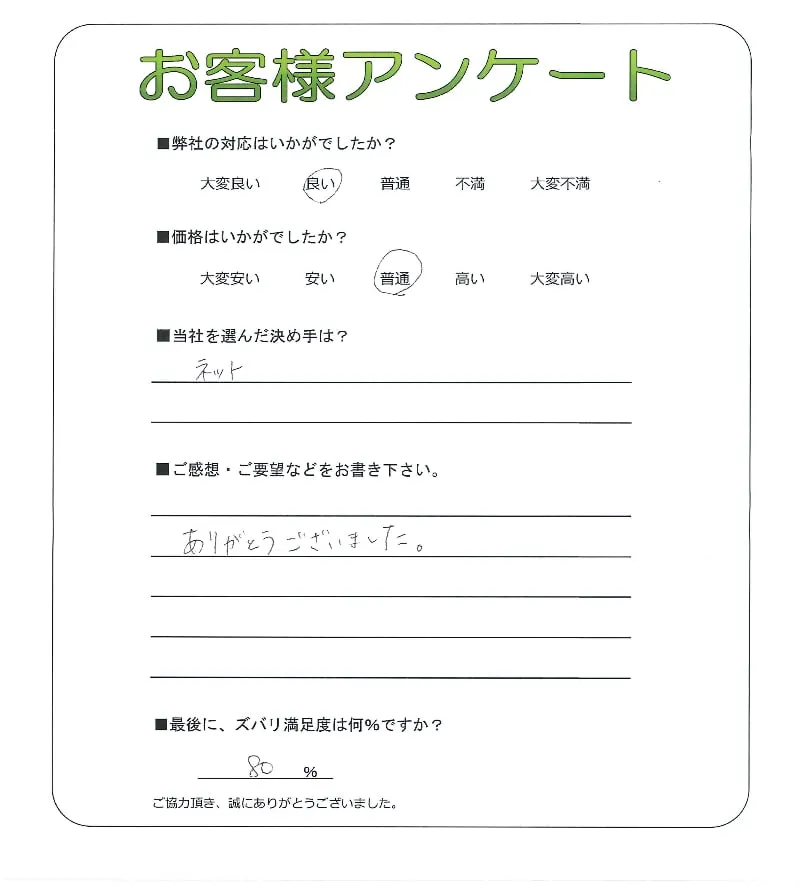 お客様アンケート
■弊社の対応はいかがでしたか？
大変良い 良い 普通 不満 大変不満
■価格はいかがでしたか？
大変安い 安い 普通 高い 大変高い
■当社を選んだ決め手は？
ネット
■ご感想・ご要望などをお書き下さい。
ありがとうございました。
■最後に、ズバリ満足度は何%ですか？
80 %
ご協力頂き、誠にありがとうございました。